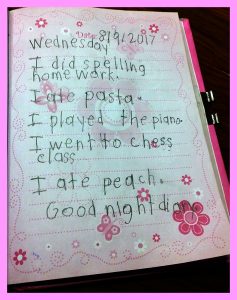 Date: 8/9/2017
Wednesday
I did spelling
homework.
I ate pasta.
I played the piano
I went to chess
class
I ate peach.
Good night diary